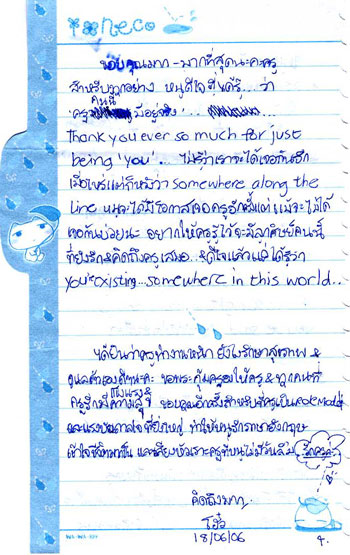 ขอบคุณมาก-มากที่สุดนะคะครู
สำหรับทุกอย่าง หนูดีใจที่ได้รู้...ว่า
'ครูคนนี้มีอยู่จริง'...
Thank you ever so much for just
being 'you'. ไม่รู้ว่าเราจะได้เจอกันอีก
เมื่อไหร่แต่ก็หวังว่า somewhere along the
line หนูจะได้มีโอกาสเจอครูอีกซักครั้ง แม้จะไม่ได้
เจอกันบ่อยนะ อยากให้ครูรู้ไว้ว่ามีลูกศิษย์คนนี้
ที่ยังรัก&คิดถึงครูเสมอ...&ดีใจแล้วแค่ได้รู้ว่า
you're existing...somewhere in this world..
ได้ยินว่าครูทำงานหนัก ยังไงรักษาสุขภาพ &
ดูแลตัวเองดีๆนะคะ ขอพระคุ้มครองให้ครู & ทุกคนที่
ครูรักมีความสุข ขอบคุณอีกครั้งสำหรับที่ครูเป็น Role Model
และแรงบันดาลใจที่ยิ่งใหญ่ ทำให้หนูรักภาษาอังกฤษ
เข้าใจชีวิตมากขึ้น และเสียงหัวเราะครูที่หนูไม่มีวันลืม
รักครูค่ะ
คิดถึงมาก,
18/06/06
4.